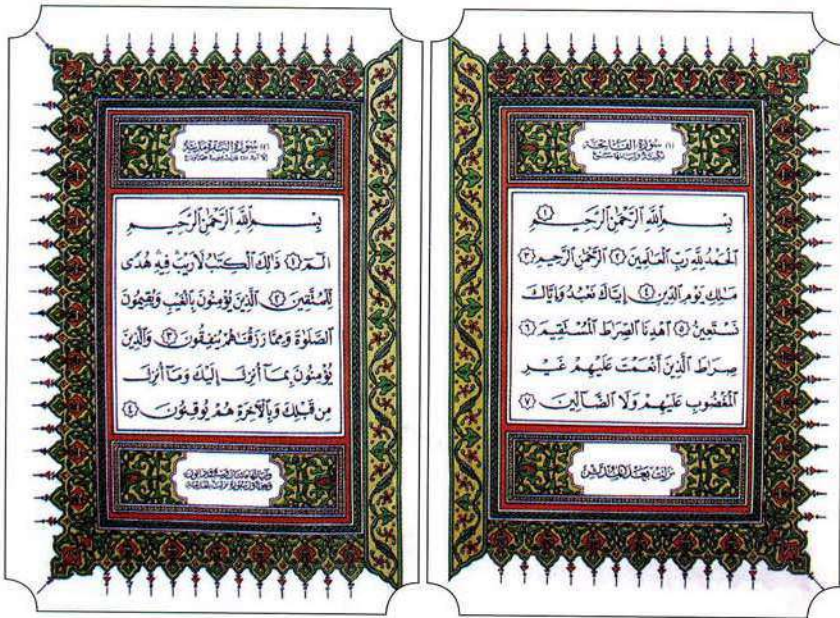 (١) سُورَةُ الفَاتِحَةِ
مَكِّيَّة وَآيَاتُهَا سَبْع
بِسْمِ ٱللَّهِ ٱلرَّحْمَٰنِ ٱلرَّحِيمِ ١
ٱلْحَمْدُ لِلَّهِ رَبِّ ٱلْعَٰلَمِينَ ٢ ٱلرَّحْمَٰنِ ٱلرَّحِيمِ ٣
مَٰلِكِ يَوْمِ ٱلدِّينِ ٤ إِيَّاكَ نَعْبُدُ وَإِيَّاكَ
نَسْتَعِينُ ٥ ٱهْدِنَا ٱلصِّرَٰطَ ٱلْمُسْتَقِيمَ ٦
صِرَٰطَ ٱلَّذِينَ أَنْعَمْتَ عَلَيْهِمْ غَيْرِ
ٱلْمَغْضُوبِ عَلَيْهِمْ وَلَا ٱلضَّآلِّينَ ٧
نزلت بعد المدثر
(٢) سُورَةُ البَقَرَةِ مَدَنِيَّة
بِسْمِ ٱللَّهِ ٱلرَّحْمَٰنِ ٱلرَّحِيمِ
الٓمٓ ١ ذَٰلِكَ ٱلْكِتَٰبُ لَا رَيْبَ فِيهِ هُدًى
لِّلْمُتَّقِينَ ٢ ٱلَّذِينَ يُؤْمِنُونَ بِٱلْغَيْبِ وَيُقِيمُونَ
ٱلصَّلَوٰةَ وَمِمَّا رَزَقْنَٰهُمْ يُنفِقُونَ ٣ وَٱلَّذِينَ
يُؤْمِنُونَ بِمَآ أُنزِلَ إِلَيْكَ وَمَآ أُنزِلَ
مِن قَبْلِكَ وَبِٱلْءَاخِرَةِ هُمْ يُوقِنُونَ ٤